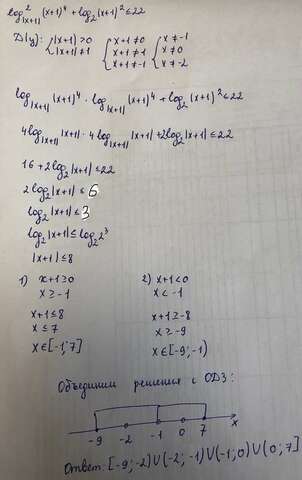 log²_{|x+1|} (x+1)⁴ + log₂(x+1)² ≤ 22
D(y): { |x+1| > 0 { x+1 ≠ 0 { x ≠ -1
|x+1| ≠ 1 x+1 ≠ 1 x ≠ 0
x+1 ≠ -1 x ≠ -2
log_{|x+1|} (x+1)⁴ · log_{|x+1|} (x+1)⁴ + log₂(x+1)² ≤ 22
4log_{|x+1|} |x+1| · 4log_{|x+1|} |x+1| + 2log₂|x+1| ≤ 22
16 + 2log₂|x+1| ≤ 22
2log₂|x+1| ≤ 6
log₂|x+1| ≤ 3
log₂|x+1| ≤ log₂2³
|x+1| ≤ 8
1) x+1 ≥ 0 2) x+1 < 0
x ≥ -1 x < -1
x+1 ≤ 8 x+1 ≥ -8
x ≤ 7 x ≥ -9
x∈[-1; 7] x∈[-9; -1)
Объединим решения с ОДЗ:
-9 -2 -1 0 7 x
Ответ: [-9; -2)∪(-2; -1)∪(-1; 0)∪(0; 7]